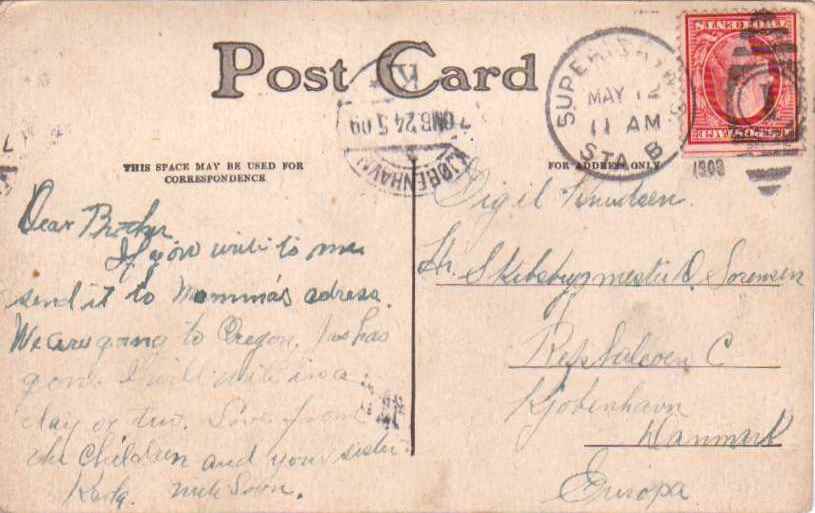 Post Card
SUPERIOR, WIS.
MAY 12
11 AM
STA. B
1909
K
OMB. 24 5 09
KJØBENHAVN
THIS SPACE MAY BE USED FOR
CORRESPONDENCE
FOR ADDRESS ONLY
Dear Brother
If you write to me
send it to Momma's adress.
We are going to Oregon. has
gone. I will write in a
day or two. Love from
the Children and your sister.
Karla.
Sigil Knudsen.
Hr. Skibsbygmester O. Sorensen
C
Kjobenhavn
Danmark
Europa